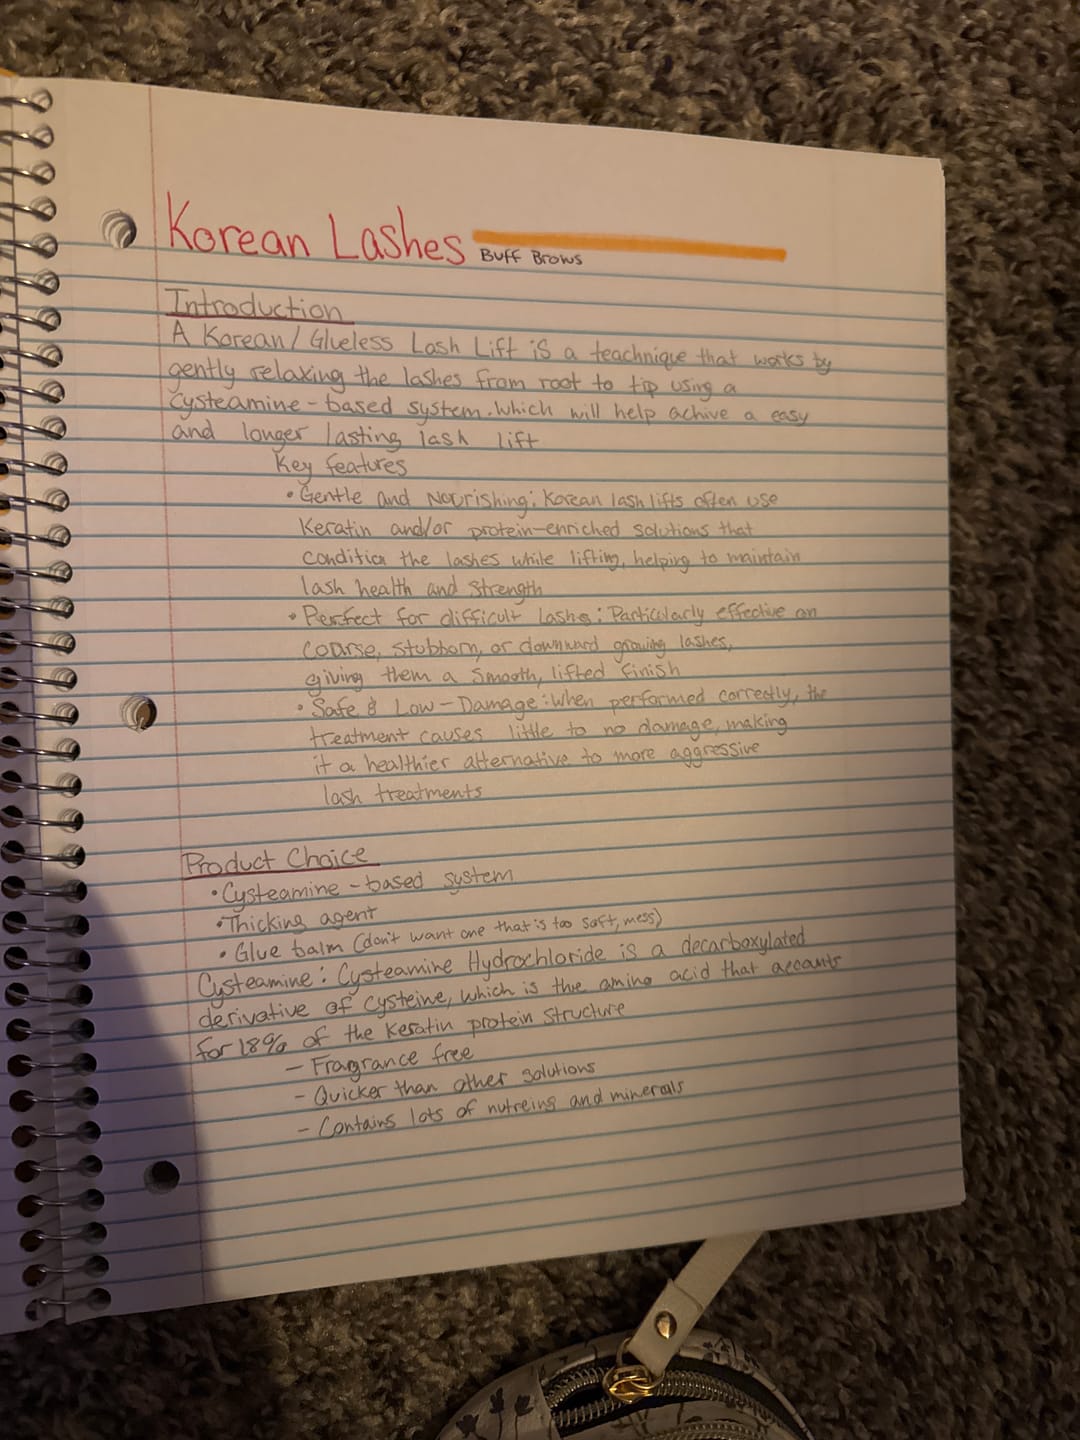 Korean Lashes Buff Brows
Introduction
A Korean/Glueless Lash Lift is a teachnique that works by
gently relaxing the lashes from root to tip using a
cysteamine-based system. Which will help achive a easy
and longer lasting lash lift
Key features
• Gentle and Nourishing: Korean lash lifts often use
Keratin and/or protein-enriched solutions that
condition the lashes while lifting, helping to maintain
lash health and strength
• Perfect for difficult Lashes: Particularly effective on
coarse, stubborn, or downward growing lashes,
giving them a smooth, lifted finish
• Safe & Low-Damage: when performed correctly, the
treatment causes little to no damage, making
it a healthier alternative to more aggressive
lash treatments
Product Choice
• Cysteamine-based system
• Thicking agent
• Glue balm (don't want one that is too soft, mess)
Cysteamine: Cysteamine Hydrochloride is a decarboxylated
derivative of cysteine, which is the amino acid that accounts
for 18% of the keratin protein structure
- Fragrance free
- Quicker than other solutions
- Contains lots of nutreins and minerals